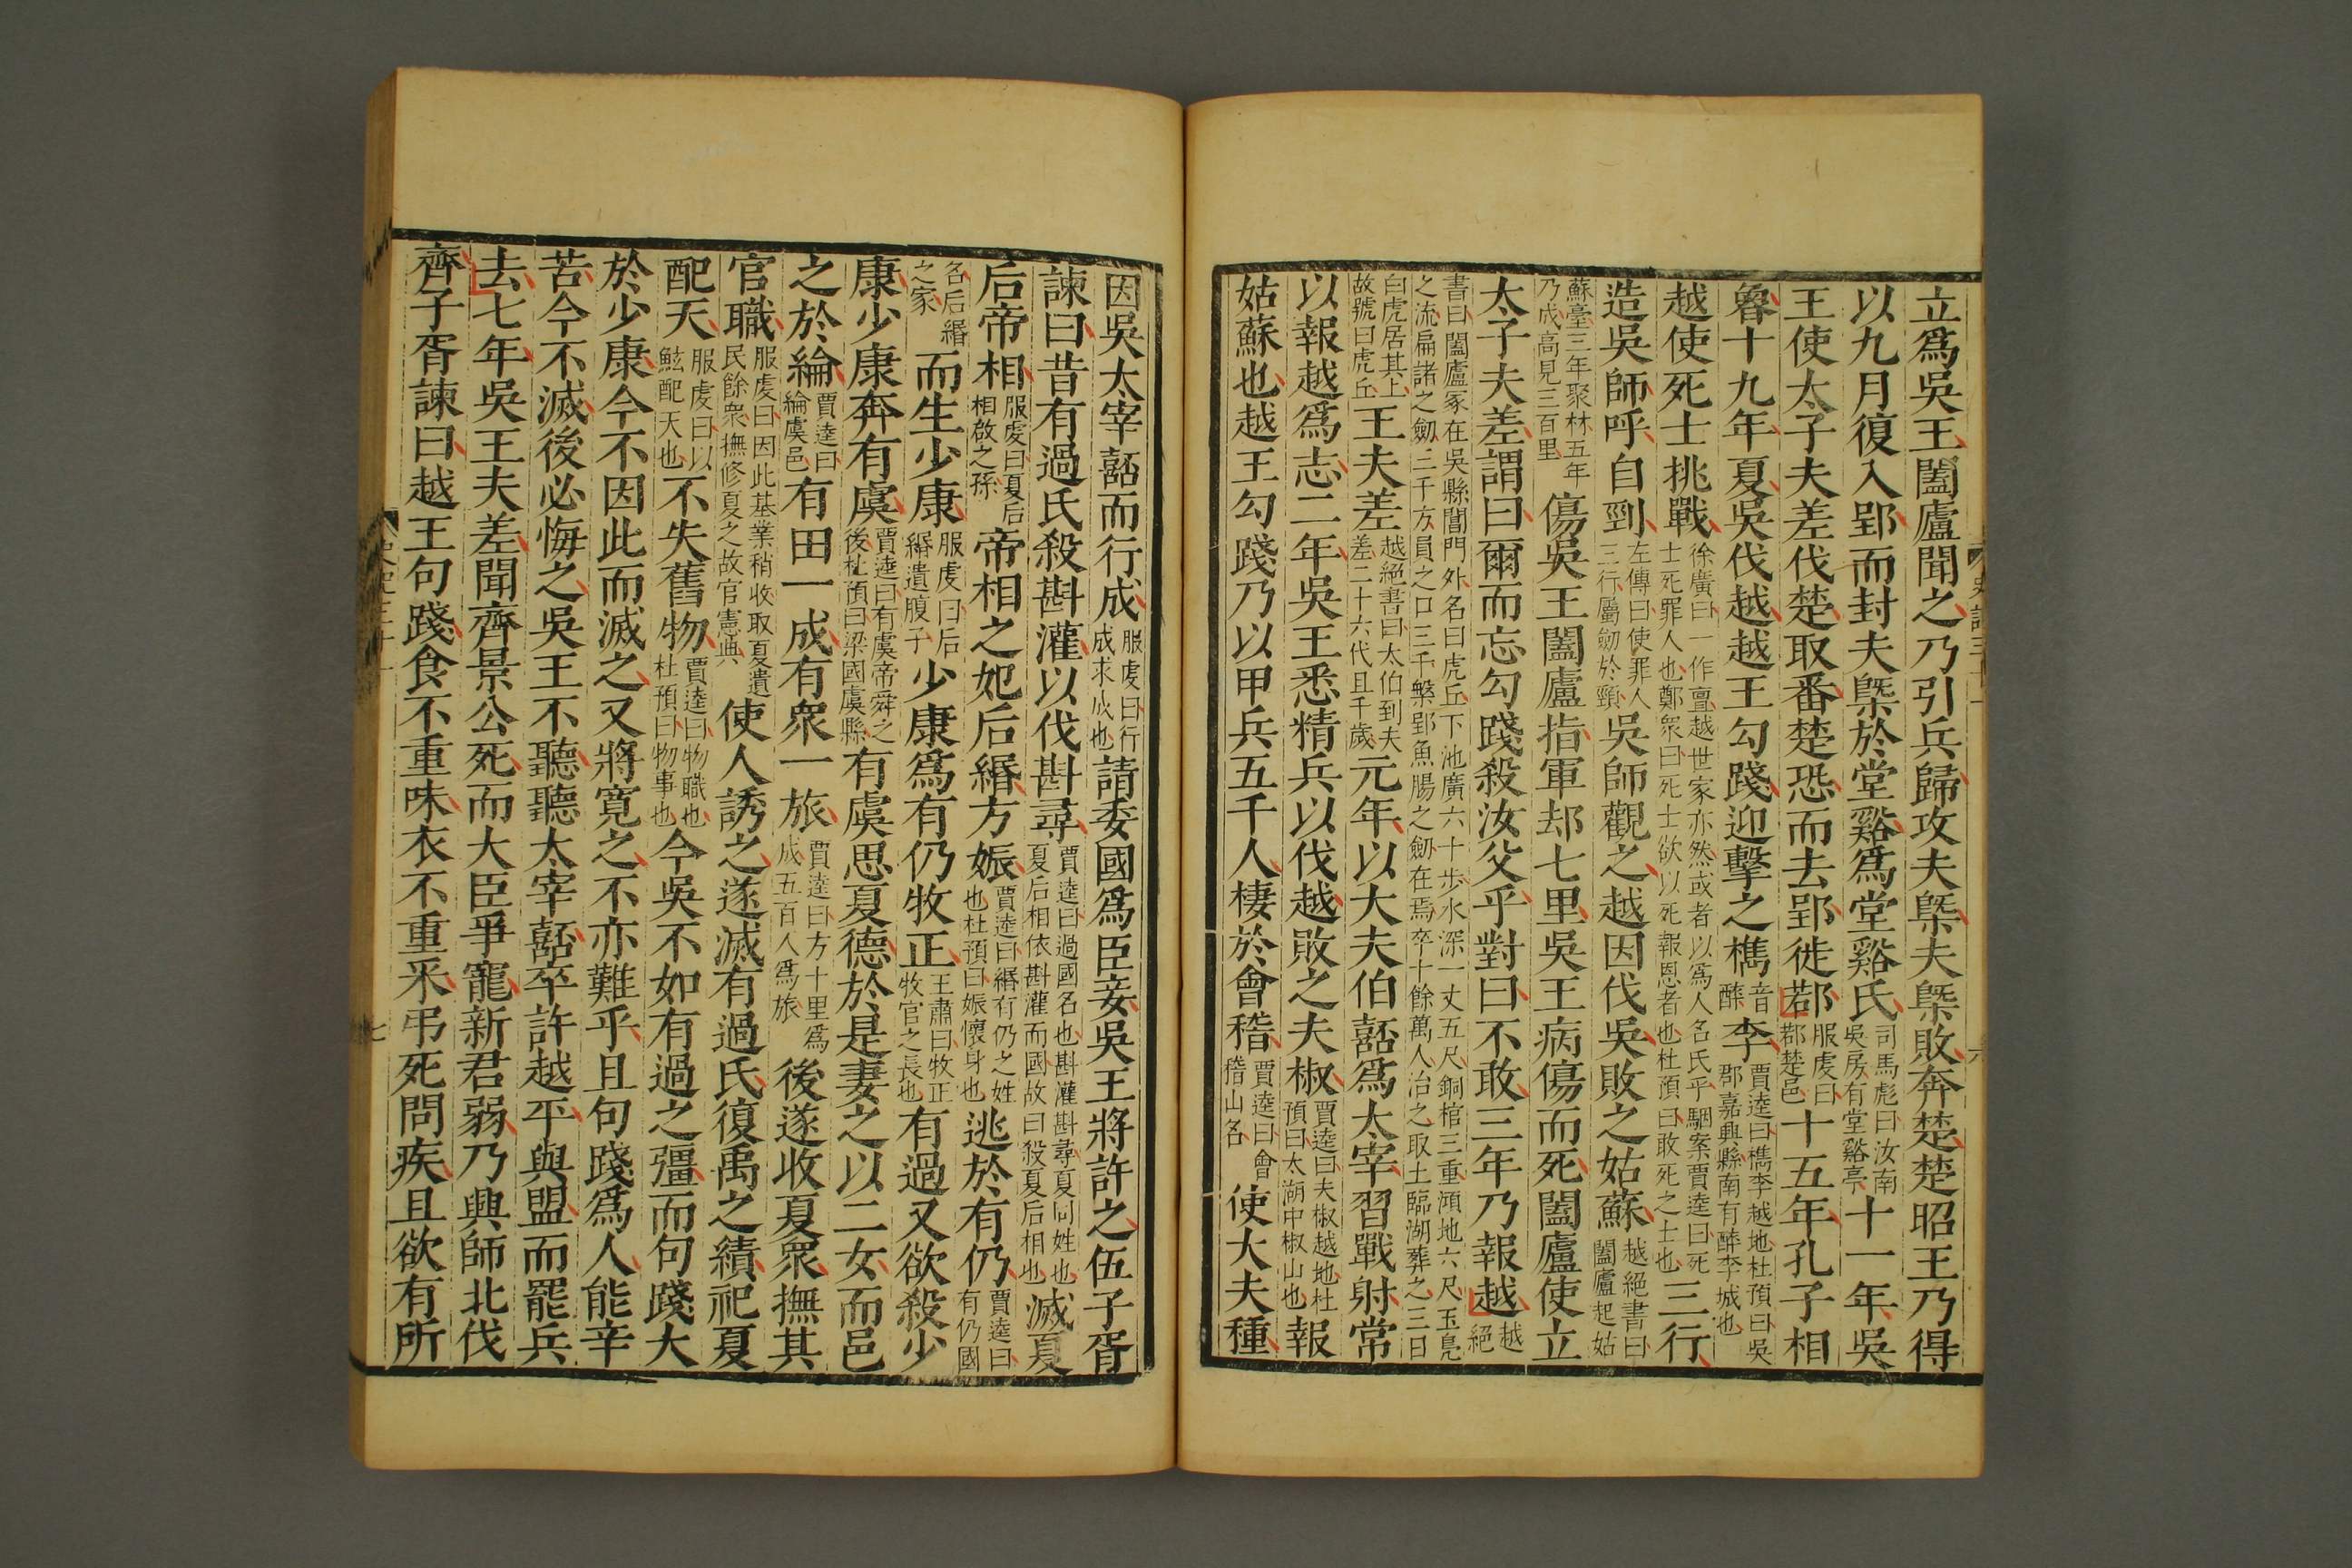 立爲吳王闔廬聞之乃引兵歸攻夫槩夫槩敗奔楚楚昭王乃得
以九月復入郢而封夫槩於堂谿爲堂谿氏司馬彪曰汝南吳房有堂谿亭十一年吳
王使太子夫差伐楚取番楚恐而去郢徙鄀服虔曰鄀楚邑十五年孔子相
魯十九年夏吳伐越越王勾踐迎擊之檇音醉李賈逵曰檇李越地杜預曰吳郡嘉興縣南有醉李城也
越使死士挑戰徐廣曰一作亶越世家亦然或者以爲人名氏乎駰案賈逵曰死士死罪人也鄭衆曰死士欲以死報恩者也杜預曰敢死之士也三行
造吳師呼自剄左傳曰使罪人三行屬劒於頸吳師觀之越因伐吳敗之姑蘇越絕書曰闔廬起姑
蘇臺三年聚林五年乃成高見三百里傷吳王闔廬指軍却七里吳王病傷而死闔廬使立
太子夫差謂曰爾而忘勾踐殺汝父乎對曰不敢三年乃報越越絕
書曰闔廬冢在吳縣閶門外名曰虎丘下池廣六十步水深一丈五尺銅棺三重澒池六尺玉鳧之流扁諸之劒三千方員之口三千槃郢魚腸之劒在焉卒十餘萬人治之取土臨湖葬之三日
白虎居其上故號曰虎丘王夫差越絕書曰太伯到夫差二十六代且千歲元年以大夫伯嚭爲太宰習戰射常
以報越爲志二年吳王悉精兵以伐越敗之夫椒賈逵曰夫椒越地杜預曰太湖中椒山也報
姑蘇也越王勾踐乃以甲兵五千人棲於會稽賈逵曰會稽山名使大夫種
史記三十一
六
因吳太宰嚭而行成服虔曰行成求成也請委國爲臣妾吳王將許之伍子胥
諫曰昔有過氏殺斟灌以伐斟尋賈逵曰過國名也斟灌斟尋夏同姓也夏后相依斟灌而國故曰殺夏后相也滅夏
后帝相服虔曰夏后相啟之孫帝相之妃后緡方娠賈逵曰緡有仍之姓也杜預曰娠懷身也逃於有仍賈逵曰有仍國
名后緡之家而生少康服虔曰后緡遺腹子少康爲有仍牧正王肅曰牧正牧官之長也有過又欲殺少
康少康奔有虞賈逵曰有虞帝舜之後杜預曰梁國虞縣有虞思夏德於是妻之以二女而邑
之於綸賈逵曰綸虞邑有田一成有衆一旅賈逵曰方十里爲成五百人爲旅後遂收夏衆撫其
官職服虔曰因此基業稍收取夏遺民餘衆撫修夏之故官憲典使人誘之遂滅有過氏復禹之績祀夏
配天服虔曰以鯀配天也不失舊物賈逵曰物職也杜預曰物事也今吳不如有過之彊而句踐大
於少康今不因此而滅之又將寬之不亦難乎且句踐爲人能辛
苦今不滅後必悔之吳王不聽聽太宰嚭卒許越平與盟而罷兵
去七年吳王夫差聞齊景公死而大臣爭寵新君弱乃興師北伐
齊子胥諫曰越王句踐食不重味衣不重采弔死問疾且欲有所
七